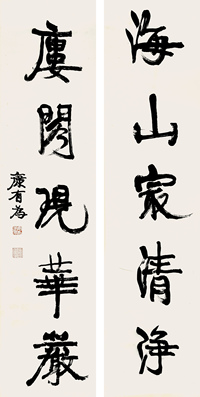 海山寂清淨
廔閣現華嚴
康有為